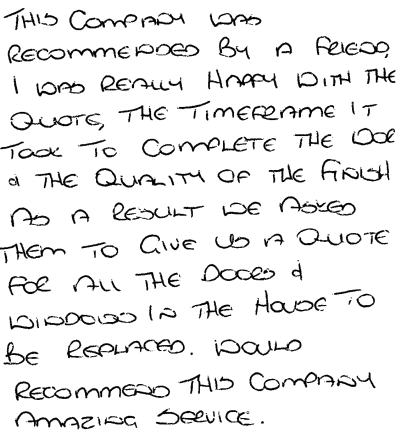 THIS COMPANY WAS
RECOMMENDED BY A FRIEND,
I WAS REALLY HAPPY WITH THE
QUOTE, THE TIMEFRAME IT
TOOK TO COMPLETE THE
& THE QUALITY OF THE FINISH
AS A RESULT WE ASKED
THEM TO GIVE US A QUOTE
FOR ALL THE DOORS &
WINDOWS IN THE HOUSE TO
BE REPLACED. WOULD
RECOMMEND THIS COMPANY
AMAZING SERVICE.